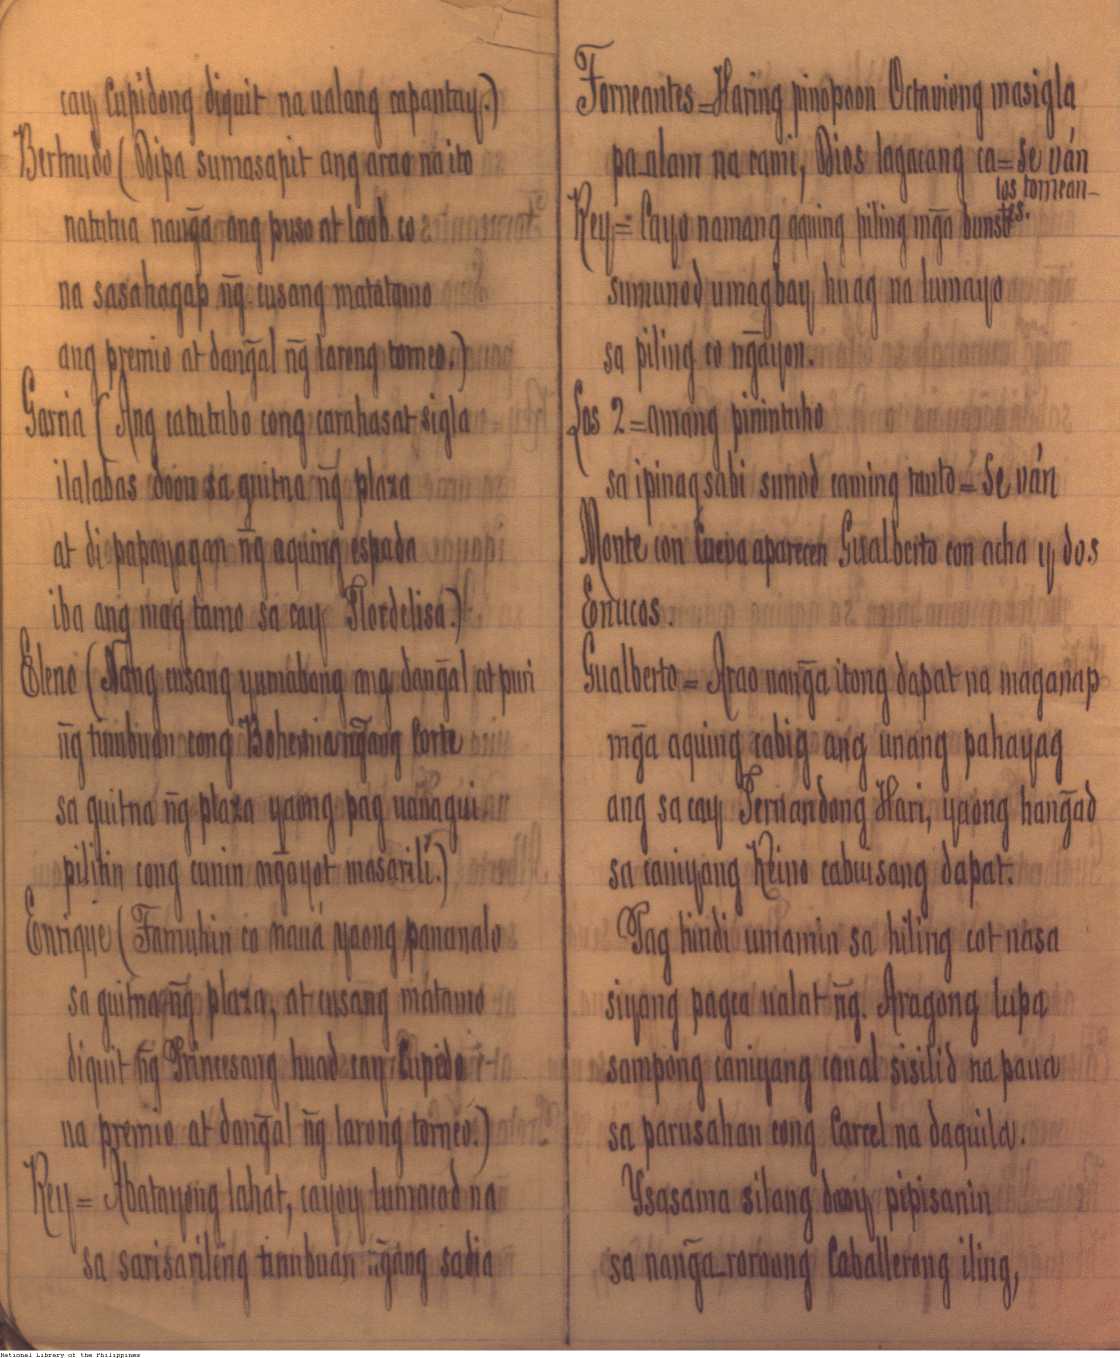 cay Cupidong diquit na ualang capantay.)
Bermudo ( Odipa sumasapit ang arao na ito
natutua nañga ang puso at loob co
na sasahagap ñg cusang matatamo
ang premio at dañgal ñg larong torneo.)
Garcia ( Ang catutubo cong carahasat sigla
ilalabas doon sa guitna ñg plaza
at di papayagan ñg aquing espada
iba ang mag tamo sa cay Flordelisa.)
Eleno ( Nang cusang yumabong ang dañgal at puri
ñg tinubuan cong Bohemia ñgang Corte
sa guitna ñg plaza yaong pag uauagui
pilitin cong cunin mgayot masarili.)
Enrique ( Tamuhin co nauá yaong pananalo
sa guitna ñg plaza, at cusang matamo
diquit ñg Princesang huad cay Cupido
na premio at dañgal ñg larong torneo.)
Rey = Abatayong lahat, cayoy lumacad na
sa sarisariling tinubuan ñgang sadia
Torneantes = Haring pinopoon Octaviong masigla
pa-alam na cami, Dios lagacang ca = Se ván
los tornean-
tes.
Rey = Cayo namang aquing piling mg̃a bunso
sumunod umagbay, huag na lumayo
sa piling co ng̃ayon.
Los 2 = amang pinintuho
sa ipinagsabi sunod caming tanto = Se ván
Monte con Cueva aparecen Gualberto con acha y dos
Enucos.
Gualberto = Arao nang̃a itong dapat na maganap
mg̃a aquing cabig ang unang pahayag
ang sa cay Fernandong Hari, yaong hang̃ad
sa caniyang Reino cabuisang dapat.
Pag hindi umamin sa hiling cot nasa
siyang pagca ualat ñg Aragong lupa
sampong caniyang canal sisilid na paua
sa parusahan cong Carcel na daquila.
Ysasama silang pipisanin
sa nang̃a-roroong Caballerong iling,
National Library of the Philippines